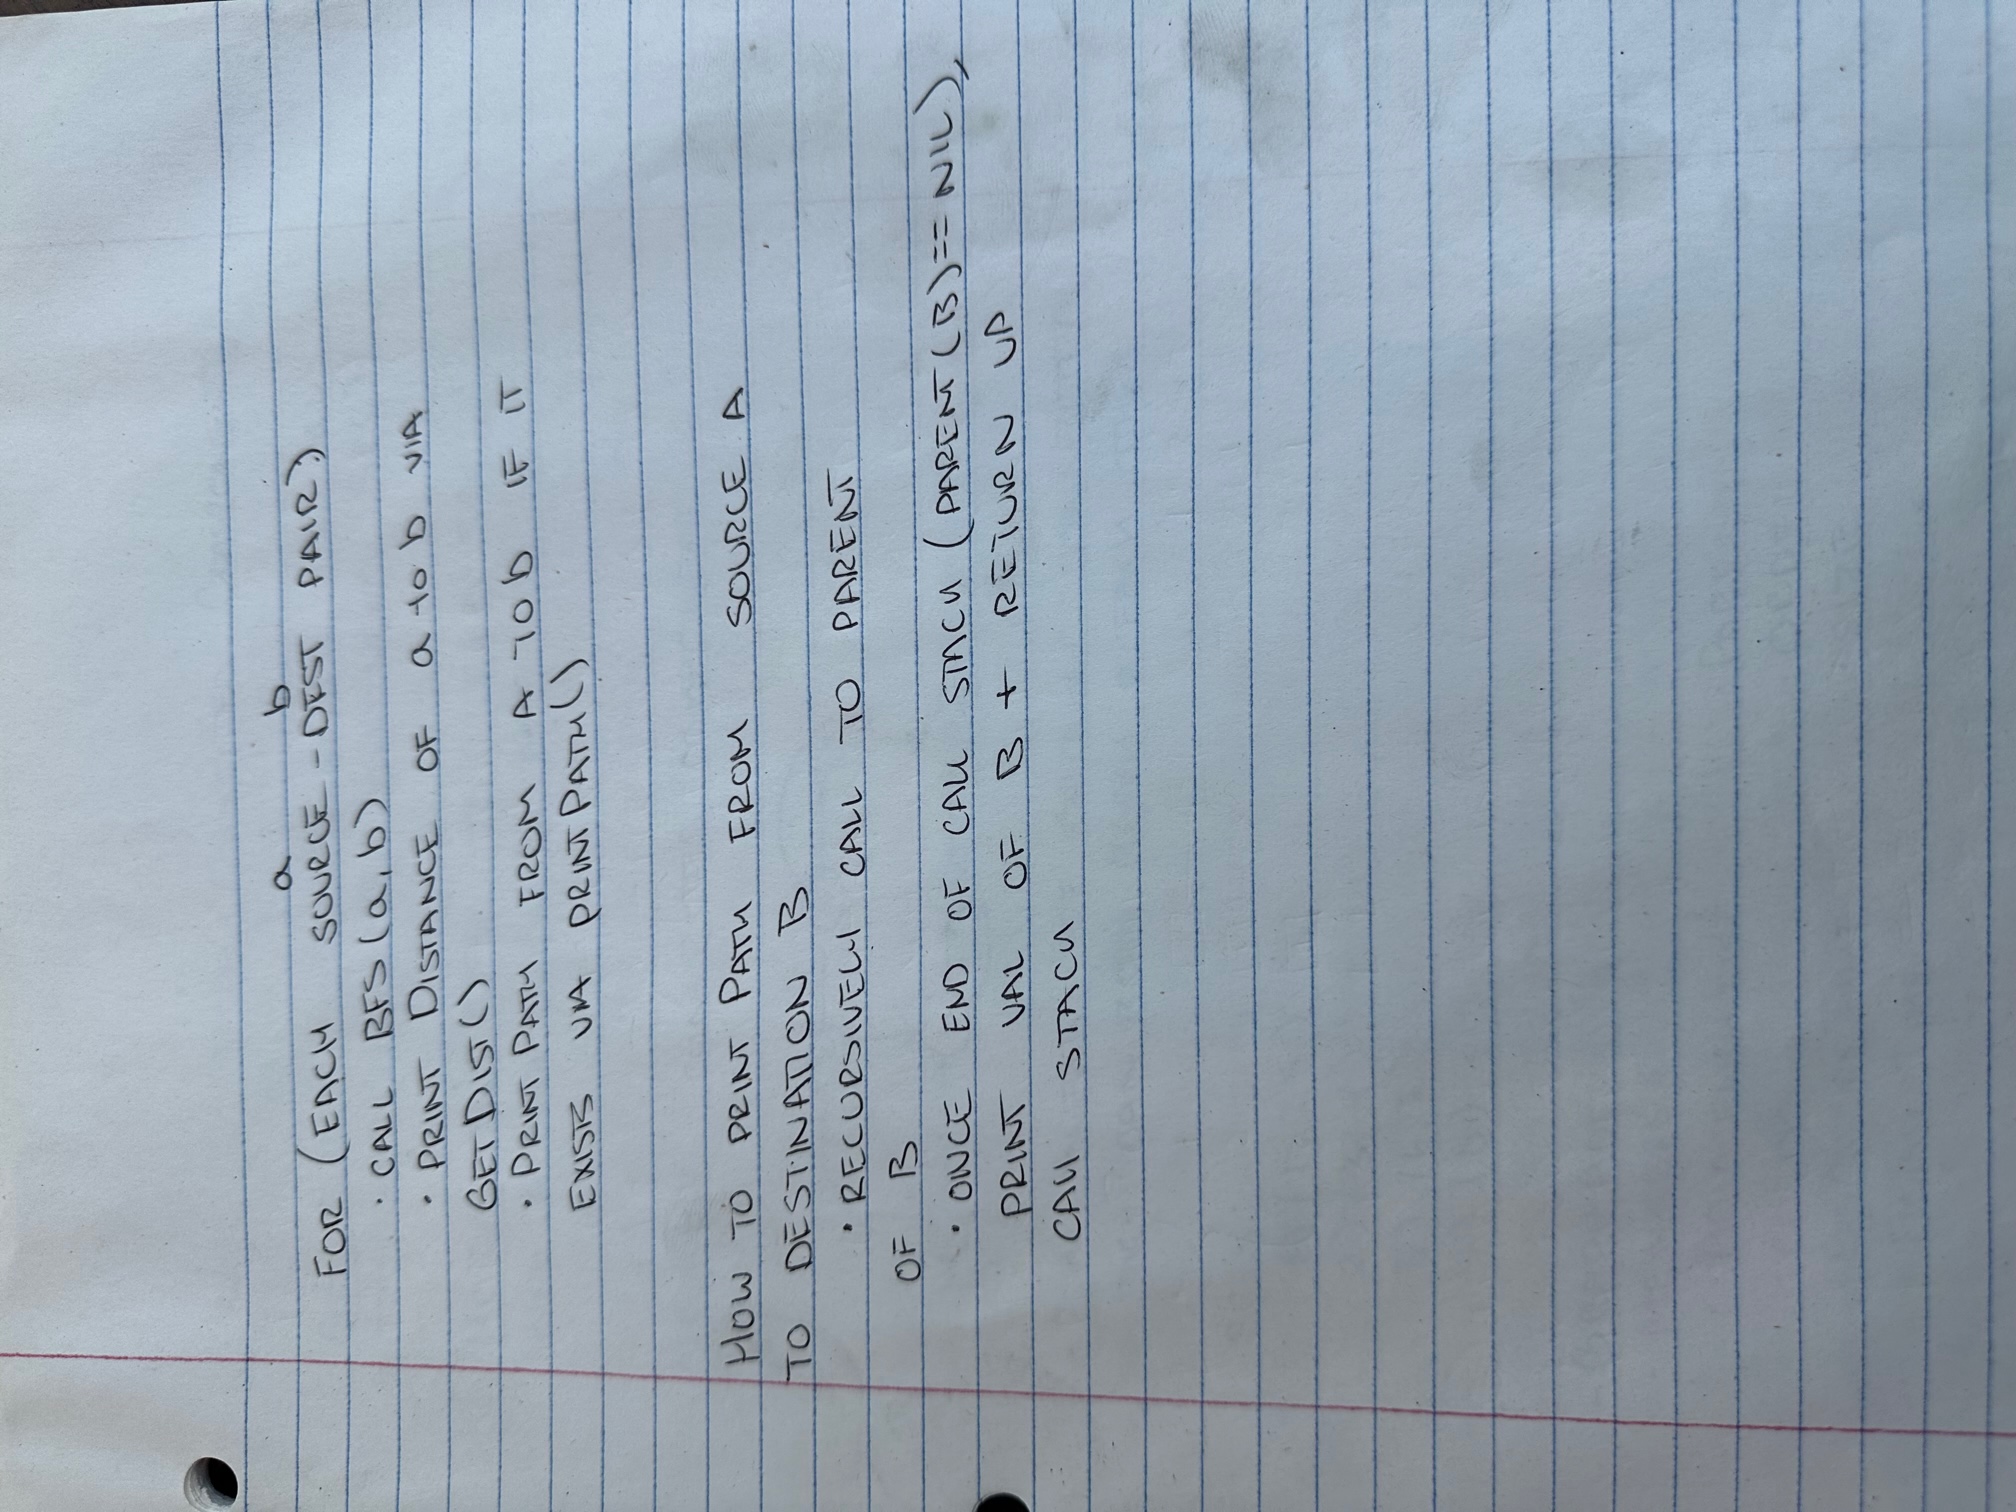 a b
FOR (EACH SOURCE - DEST PAIR)
· CALL BFS (a, b)
· PRINT DISTANCE OF a to b VIA
GETDIST()
· PRINT PATH FROM A TO b IF IT
EXISTS VIA PRINTPATH()
HOW TO PRINT PATH FROM SOURCE A
TO DESTINATION B
· RECURSIVELY CALL TO PARENT
OF B
· ONCE END OF CALL STACK (PARENT (B) == NIL),
PRINT VAL OF B + RETURN UP
CALL STACK